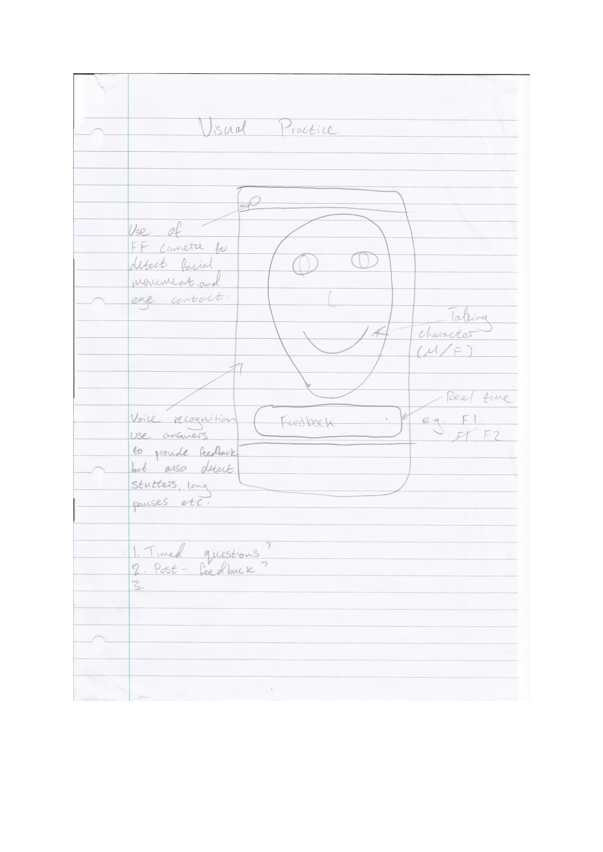 Visual Practice
Use of
FF camera to
detect facial
movement and
eye contact.
Talking
character
(M/F)
Real time
eg. F1
F1 F2
Feedback
Voice recognition
use answers
to provide feedback
but also detect
stutters, long
pauses etc.
1. Timed questions?
2. Post-feedback?
3.